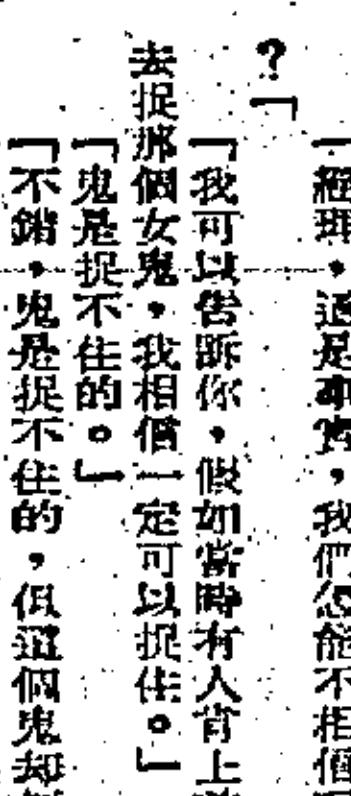 「經理,這是事實,我們怎能不相信
?」
「我可以告訴你,假如當時有人肯上
去捉那個女鬼,我相信一定可以捉住。」
「鬼是捉不住的。」
「不錯,鬼是捉不住的,但這個鬼却